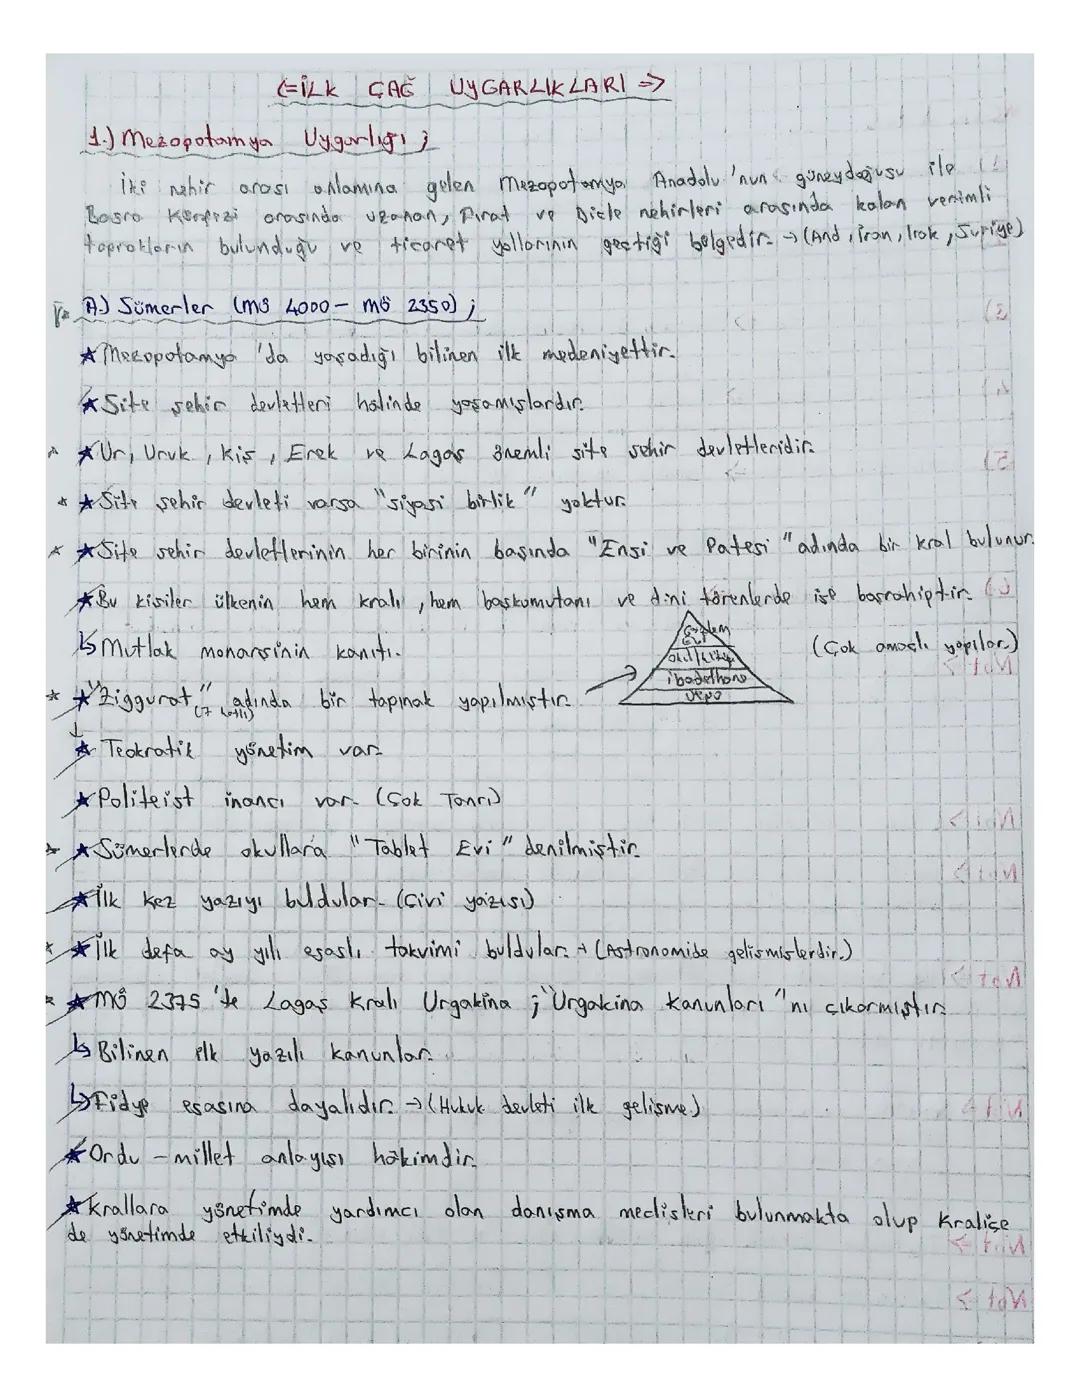 <=İLK ÇAĞ UYGARLIKLARI =>
1.) Mezopotamya Uygarlığı ;
İki nehir arası anlamına gelen Mezopotamya Anadolu'nun güneydoğusu ile
Basra Körfezi arasında uzanan, Fırat ve Dicle nehirleri arasında kalan verimli
toprakların bulunduğu ve ticaret yollarının geçtiği bölgedir. → (And, İran, Irak, Suriye)
A.) Sümerler (MÖ 4000 - MÖ 2350) ;
★ Mezopotamya 'da yaşadığı bilinen ilk medeniyettir.
★ Site şehir devletleri halinde yaşamışlardır.
★ Ur, Uruk, Kiş, Erek ve Lagaş önemli site şehir devletleridir.
★ Site şehir devleti varsa "siyasi birlik" yoktur.
★ Site şehir devletlerinin her birinin başında "Ensi ve Patesi" adında bir kral bulunur.
★ Bu kişiler ülkenin hem kralı, hem başkomutanı ve dini törenlerde ise başrahiptir.
↳ Mutlak monarşinin kanıtı.
(Çok amaçlı yapılar.)
Gözlem
Evi
okul/
ibadethane
depo
★ "Ziggurat" adında bir tapınak yapılmıştır.
(7 katlı)
★ Teokratik yönetim var.
★ Politeist inancı var. (Çok Tanrı)
★ Sümerlerde okullara "Tablet Evi" denilmiştir.
★ İlk kez yazıyı buldular. (Çivi yazısı)
★ İlk defa ay yılı esaslı takvimi buldular. → (Astronomide gelişmişlerdir.)
★ MÖ 2375 'te Lagaş Kralı Urgakina ; "Urgakina Kanunları"nı çıkarmıştır.
↳ Bilinen ilk yazılı kanunlar.
↳ Fidye esasına dayalıdır. → (Hukuk devleti ilk gelişme.)
★ Ordu - millet anlayışı hâkimdir.
★ Krallara yönetimde yardımcı olan danışma meclisleri bulunmakta olup Kraliçe
de yönetimde etkiliydi.